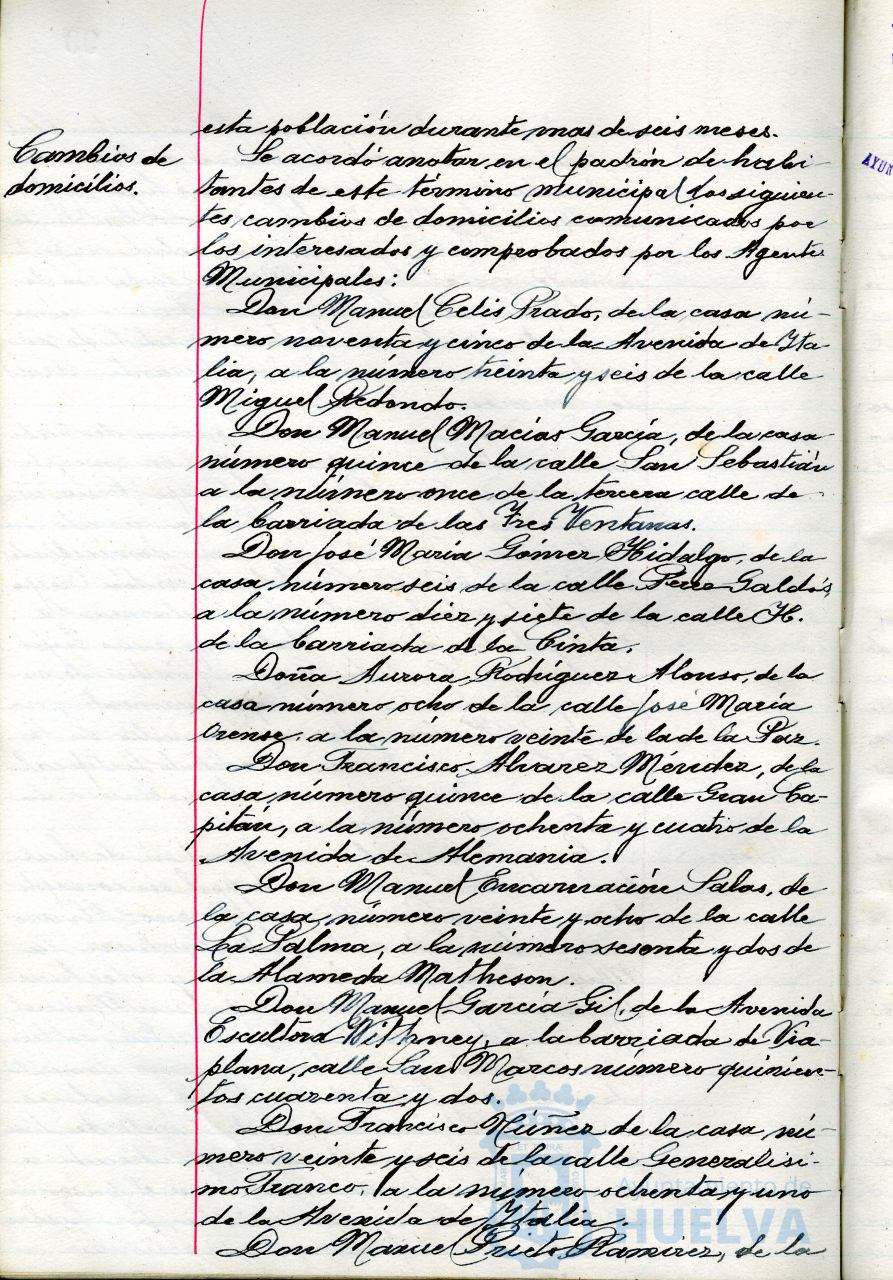 esta población durante mas de seis meses.
Cambios de
domicilios.
Se acordó anotar en el padrón de habi-
tantes de este término municipal los siguien-
tes cambios de domicilios comunicados por
los interesados y comprobados por los Agentes
Municipales:
Don Manuel Celis Prado, de la casa nú-
mero noventa y cinco de la Avenida de Ita-
lia, a la número treinta y seis de la calle
Miguel Redondo.
Don Manuel Macías García, de la casa
número quince de la calle San Sebastián
a la número once de la tercera calle de
la barriada de las Tres Ventanas.
Don José María Gómez Hidalgo, de la
casa número seis de la calle Perez Galdós,
a la número diez y siete de la calle H.
de la barriada de la Cinta.
Doña Aurora Rodríguez Alonso, de la
casa número ocho de la calle José María
Orense, a la número veinte de la de la Paz.
Don Francisco Alvarez Méndez, de la
casa número quince de la calle Gran Ca-
pitán, a la número ochenta y cuatro de la
Avenida de Alemania.
Don Manuel Encarnación Salas, de
la casa número veinte y ocho de la calle
La Palma, a la número sesenta y dos de
la Alameda Matheson.
Don Manuel García Gil, de la Avenida
Escultora Withney, a la barriada de Via-
plana, calle San Marcos número quinien-
tos cuarenta y dos.
Don Francisco Núñez de la casa nú-
mero veinte y seis de la calle Generalísi-
mo Franco, a la número ochenta y uno
de la Avenida de Italia.
Don Manuel Prieto Ramírez, de la
Ayuntamiento de
HUELVA
AYUN